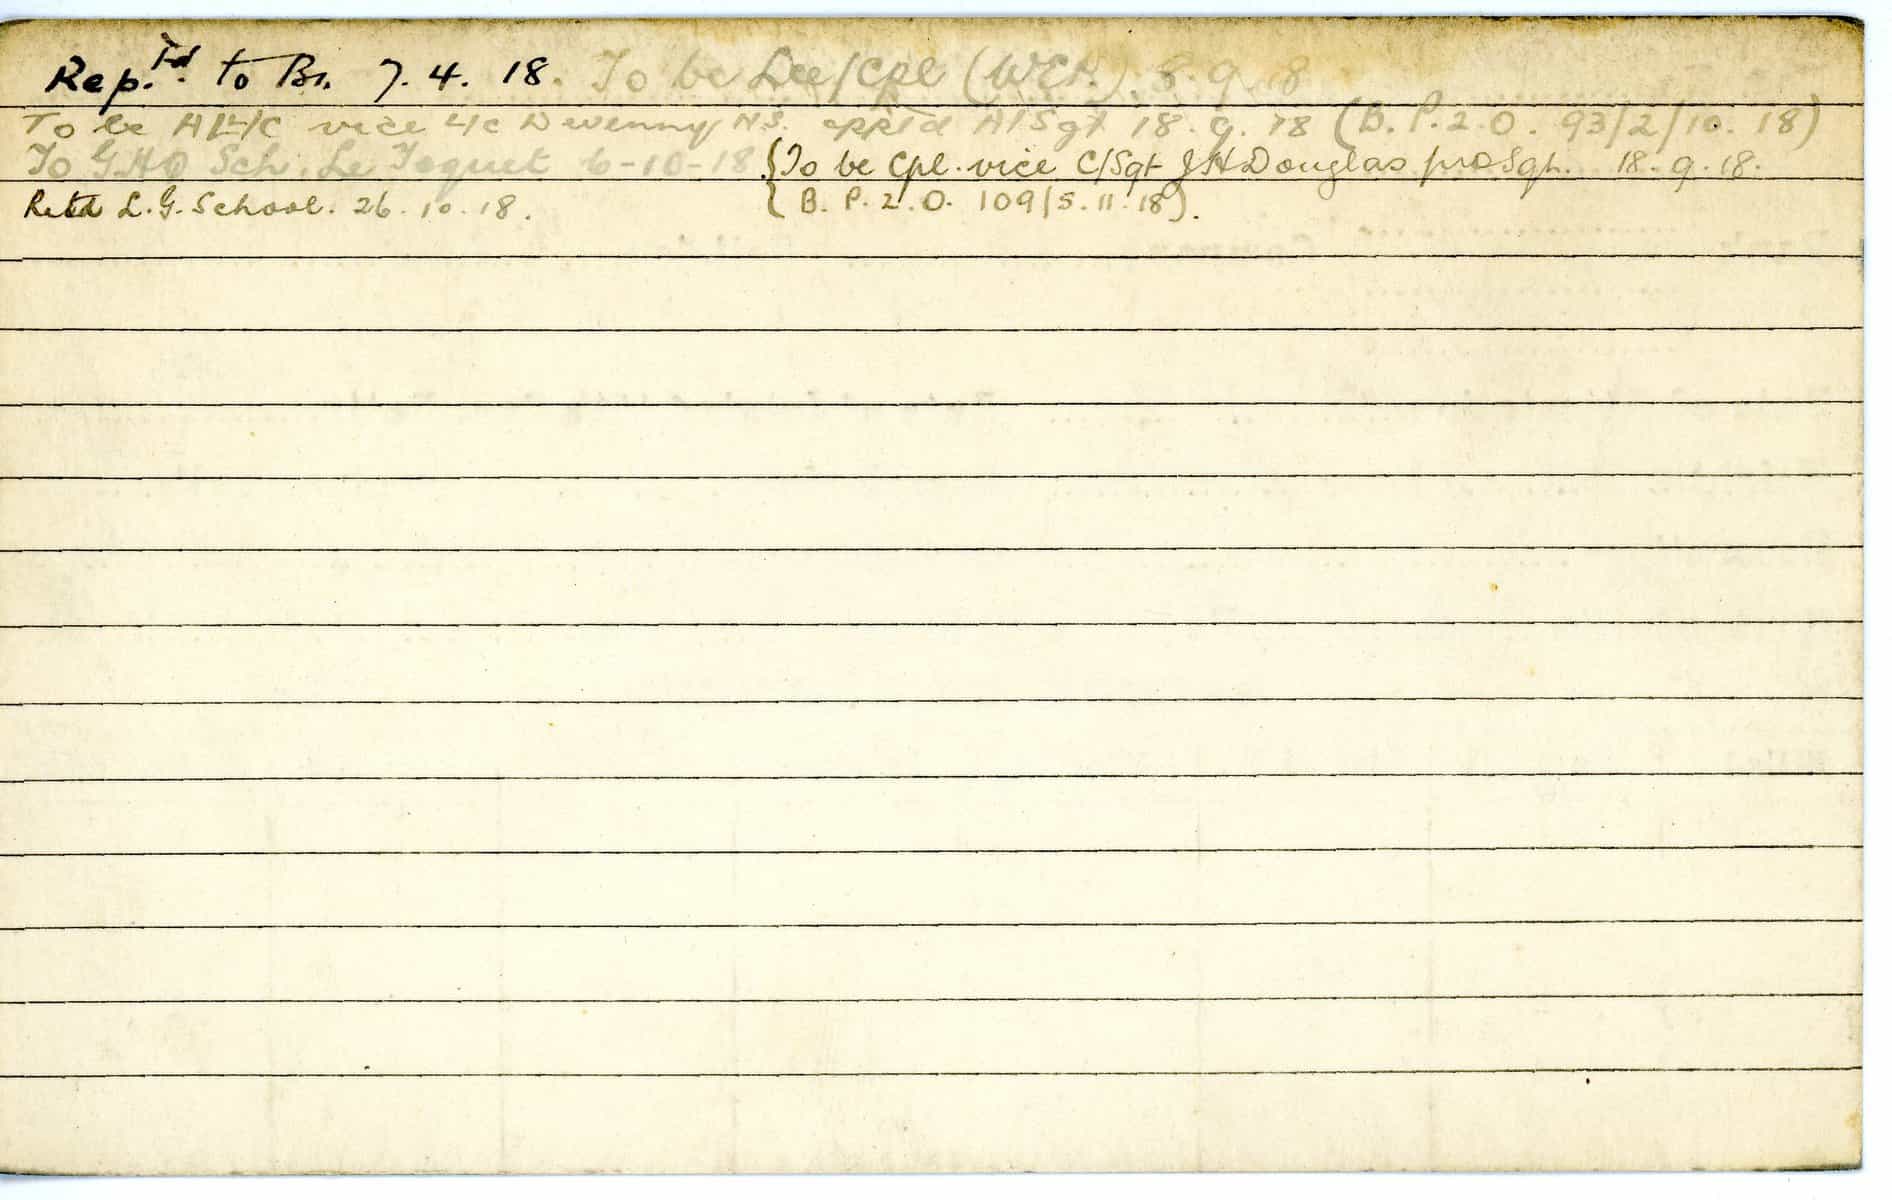 Rep.td. to Bn. 7. 4. 18. To be Lce/Cpl (W.E.P.). 8. 9. 18
To be A/L/C vice L/c Devenny N.S. app't'd A/Sgt 18. 9. 18 (B. P. 2. O. 93/2/10. 18)
To GHQ Sch. Le Toquet 6-10-18 {To be Cpl. vice C/Sgt J H Douglas pro Sgt. 18. 9. 18.
Retd L. G. School. 26. 10. 18. { B. P. 2. O. 109/5. 11. 18).